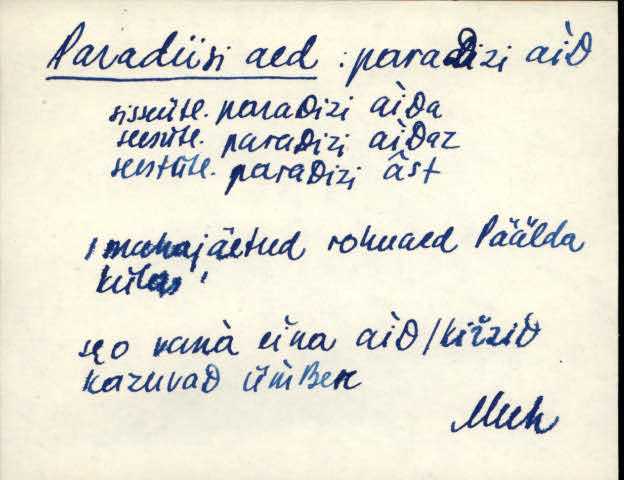 Paradiisi aed : paraDizi àiD
sisseütl. paraDizi àiDa
seesütl. paraDizi àiDaz
seestütl. paraDizi âst
' mahajäetud rohuaed Päälda
külas '
sẹo vanà eina àiD / kiřziD
kazuvaD ümBer
Muh